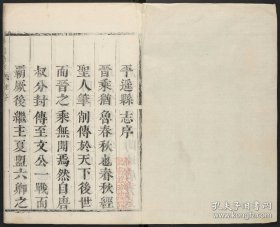 平遥縣志序
晉乘猶魯春秋也春秋經
聖人筆削傳於天下後世
而晉之乘無聞焉然自唐
叔分封傳至文公一戰而
霸厥後繼主夏盟六卿之